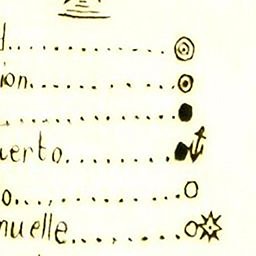 d
ion
uerto
o
nuelle